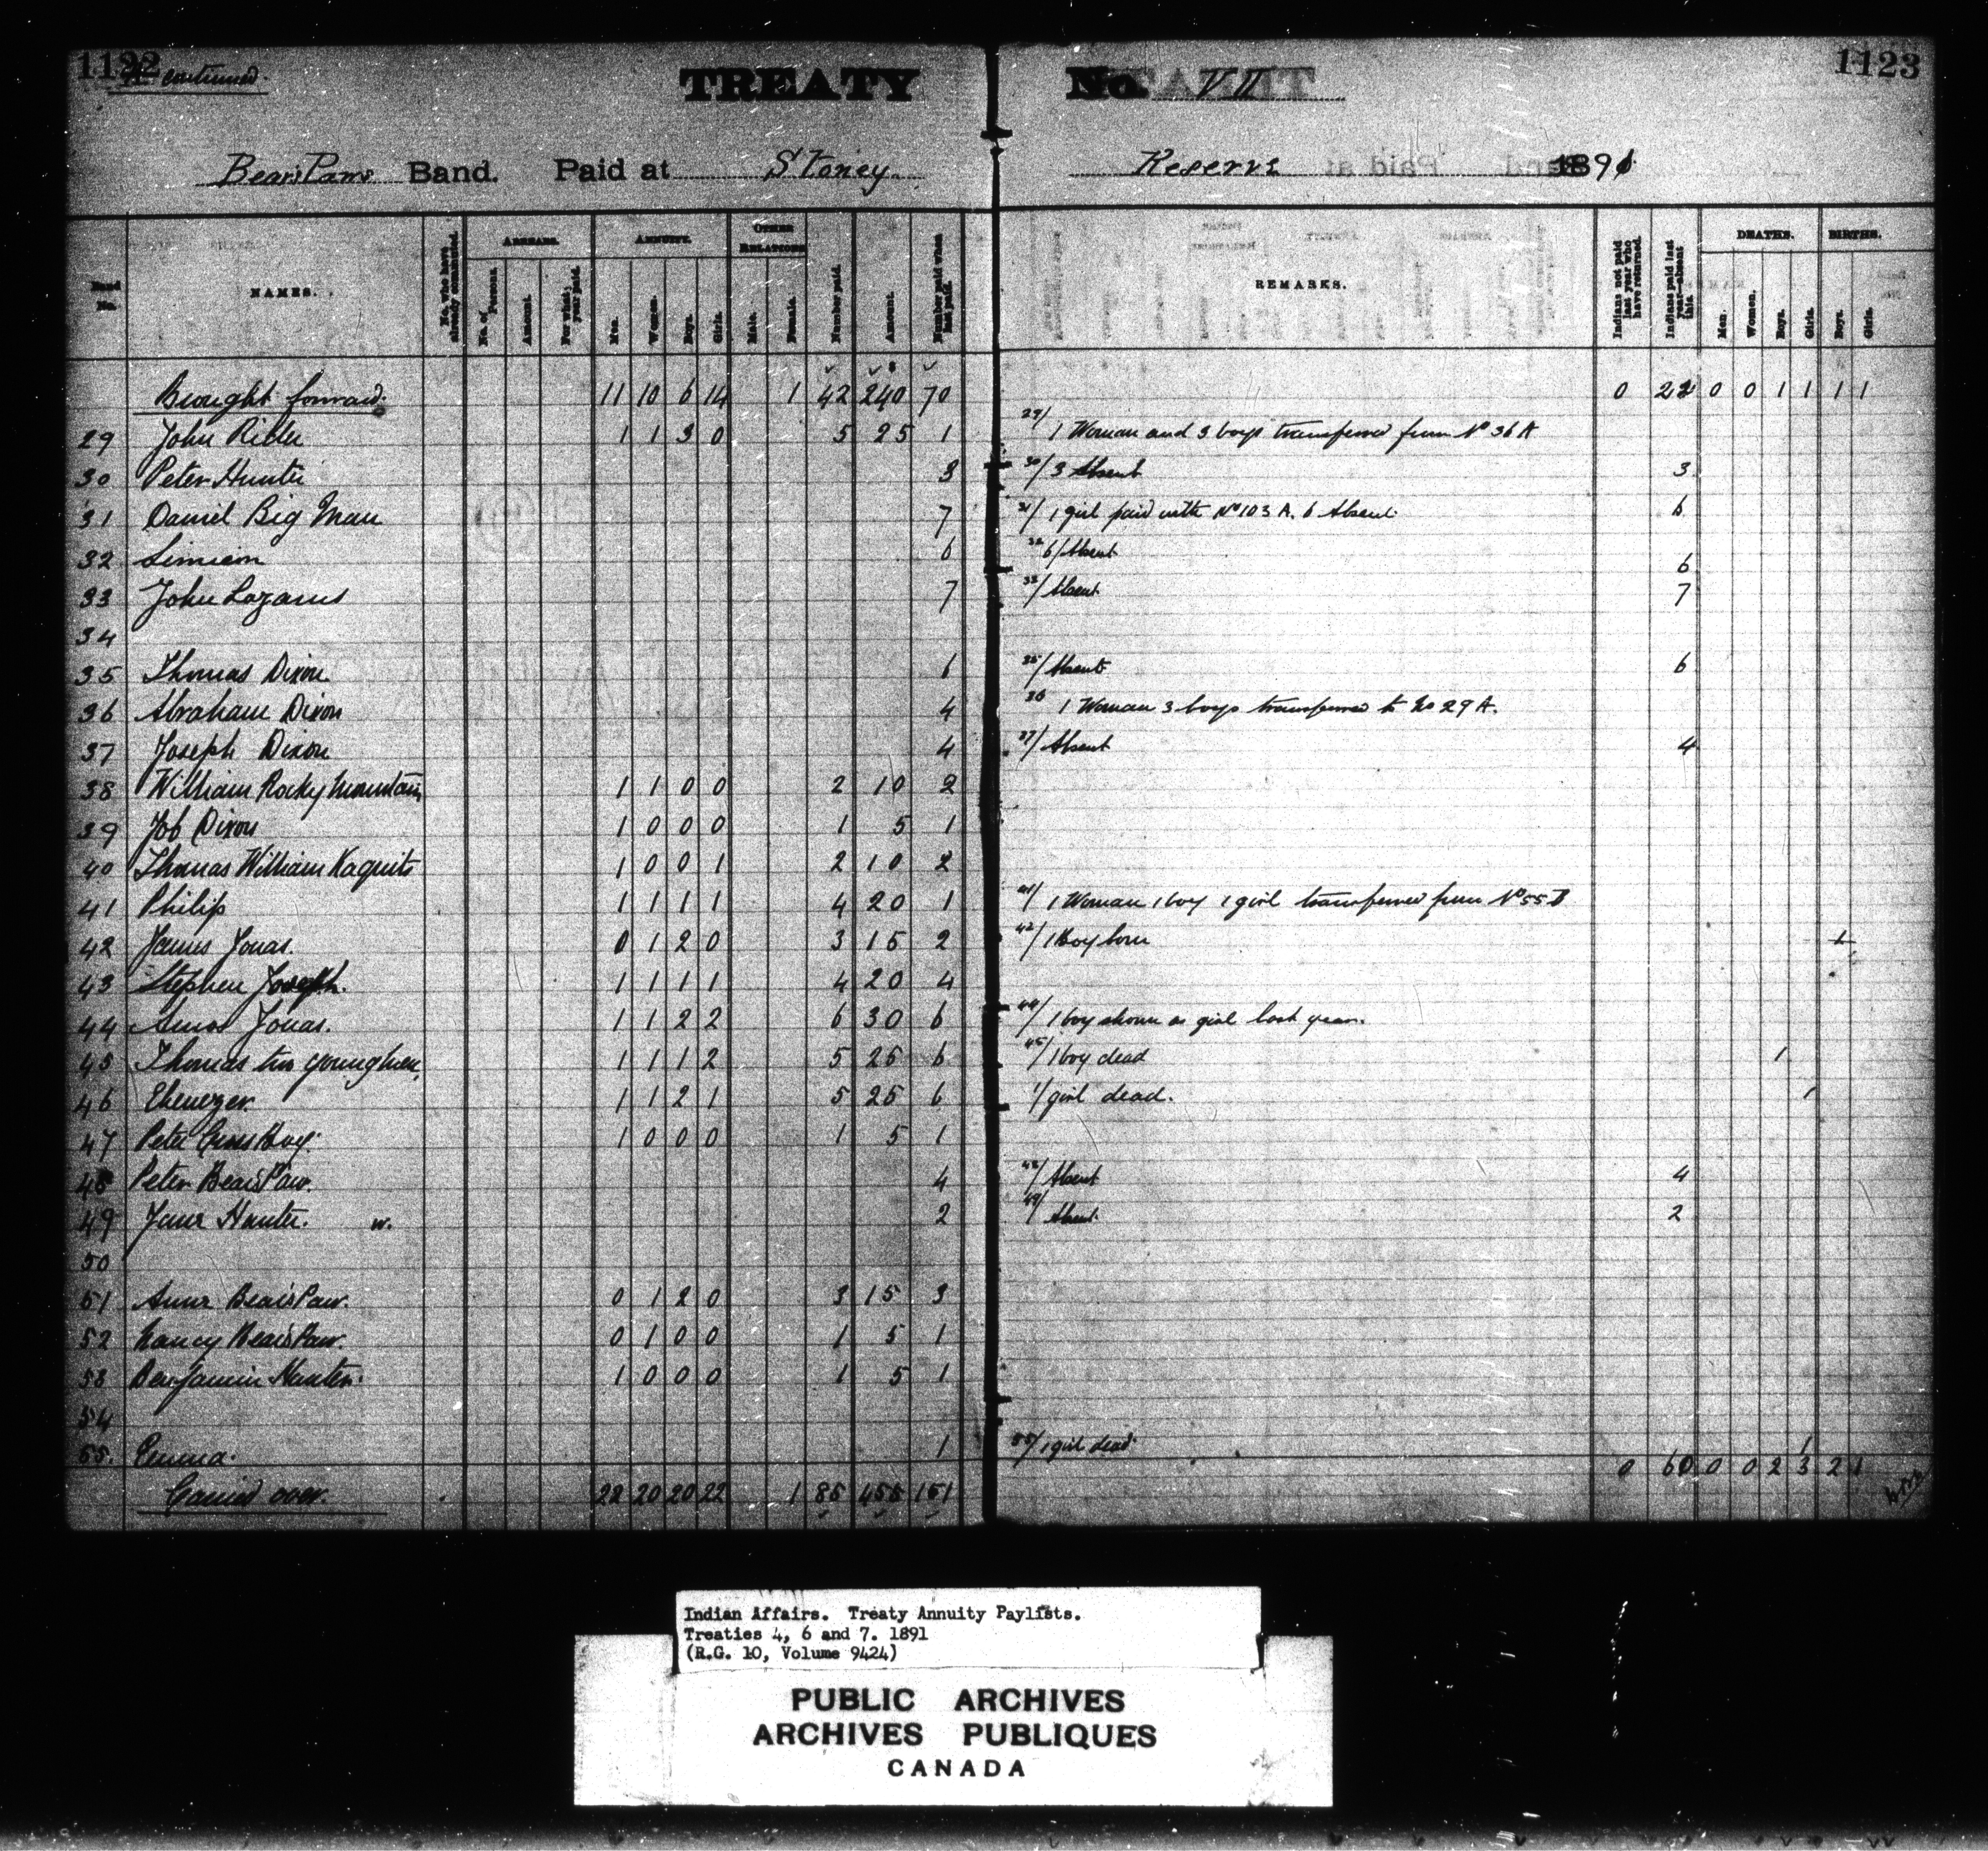 1122
A continued.
TREATY No. VII
1123
Bear's Paw's Band. Paid at Stoney Reserve 1891
Band No.
NAMES.
No. who have already commuted.
ARREARS.
No. of Persons.
Amount.
For what year paid.
ANNUITY.
Men.
Women.
Boys.
Girls.
OTHER RELATIONS
Male.
Female.
Number paid.
Amount.
Number paid when last paid.
REMARKS.
Indians not paid last year who have returned.
Indians paid last year—absent this.
DEATHS.
Men.
Women.
Boys.
Girls.
BIRTHS.
Boys.
Girls.
Brought forward. 11 10 6 14 1 42 240 70 0 22 0 0 1 1 1 1
29 John Rider 1 1 3 0 5 25 1 29/ 1 Woman and 3 boys transferred from No 36 A
30 Peter Hunter 3 30/ 3 Absent 3
31 Daniel Big Man 7 31/ 1 girl paid with No 103 A. 6 Absent 6
32 Simeon 6 32 6/ Absent 6
33 John Lazarus 7 33/ Absent 7
34
35 Thomas Dixon 6 35/ Absent 6
36 Abraham Dixon 4 36 1 Woman 3 boys transferred to No 29 A.
37 Joseph Dixon 4 37/ Absent 4
38 William Rocky Mountain 1 1 0 0 2 10 2
39 Job Dixon 1 0 0 0 1 5 1
40 Thomas William Kaquits 1 0 0 1 2 10 2
41 Philip 1 1 1 1 4 20 1 41/ 1 Woman 1 boy 1 girl transferred from No 55 B
42 James Jonas. 0 1 2 0 3 15 2 42/ 1 Boy born 1
43 Stephen Joseph. 1 1 1 1 4 20 4
44 Amos Jonas. 1 1 2 2 6 30 6 44/ 1 boy shown as girl last year.
45 Thomas two youngmen. 1 1 1 2 5 25 6 45/ 1 boy dead 1
46 Ebenezer. 1 1 2 1 5 25 6 1/ girl dead. 1
47 Peter 1 0 0 0 1 5 1
48 Peter Bear's Paw. 4 48/ Absent 4
49 Jane Hunter. w. 2 49/ Absent. 2
50
51 Anne Bear's Paw. 0 1 2 0 3 15 3
52 Nancy Bear's Paw. 0 1 0 0 1 5 1
53 Benjamin Hunter. 1 0 0 0 1 5 1
54
55. Emma. 1 55/ 1 girl dead. 1
Carried over. 22 20 20 22 1 85 455 151 0 60 0 0 2 3 2 1
Indian Affairs. Treaty Annuity Paylists.
Treaties 4, 6 and 7. 1891
(R.G. 10, Volume 9424)
PUBLIC ARCHIVES
ARCHIVES PUBLIQUES
CANADA